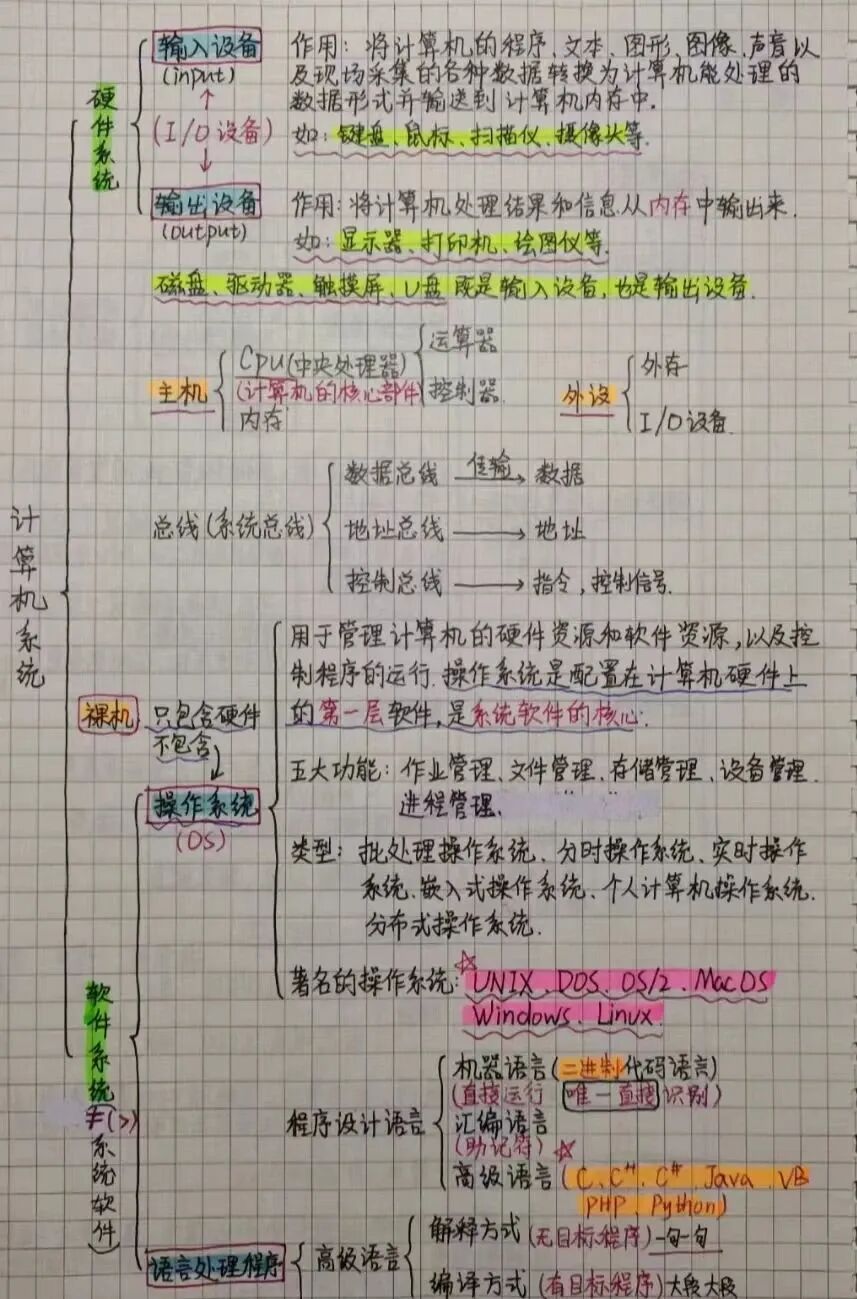 计算机系统
硬件系统
输入设备
(input)
作用：将计算机的程序、文本、图形、图像、声音以
及现场采集的各种数据转换为计算机能处理的
数据形式并输送到计算机内存中.
(I/O设备)
如：键盘、鼠标、扫描仪、摄像头等.
输出设备
(output)
作用：将计算机处理结果和信息从内存中输出来.
如：显示器、打印机、绘图仪等.
磁盘、驱动器、触摸屏、U盘既是输入设备,也是输出设备.
主机
CPU(中央处理器)
(计算机的核心部件)
内存
运算器
控制器.
外设
外存
I/O设备.
总线(系统总线)
数据总线 传输 数据
地址总线 → 地址
控制总线 → 指令,控制信号.
裸机 只包含硬件
不包含
操作系统
(OS)
用于管理计算机的硬件资源和软件资源,以及控
制程序的运行.操作系统是配置在计算机硬件上
的第一层软件,是系统软件的核心.
五大功能：作业管理、文件管理、存储管理、设备管理.
进程管理.
类型：批处理操作系统、分时操作系统、实时操作
系统、嵌入式操作系统、个人计算机操作系统.
分布式操作系统.
著名的操作系统:☆UNIX、DOS、OS/2、MacOS
Windows、Linux.
软件系统
≠(>)
系统软件
程序设计语言
机器语言(二进制代码语言)
(直接运行 唯一直接识别)
汇编语言
(助记符) ☆
高级语言(C、C++、C#、Java、VB
PHP、Python)
语言处理程序
高级语言
解释方式(无目标程序)一句一句
编译方式(有目标程序)大段大段